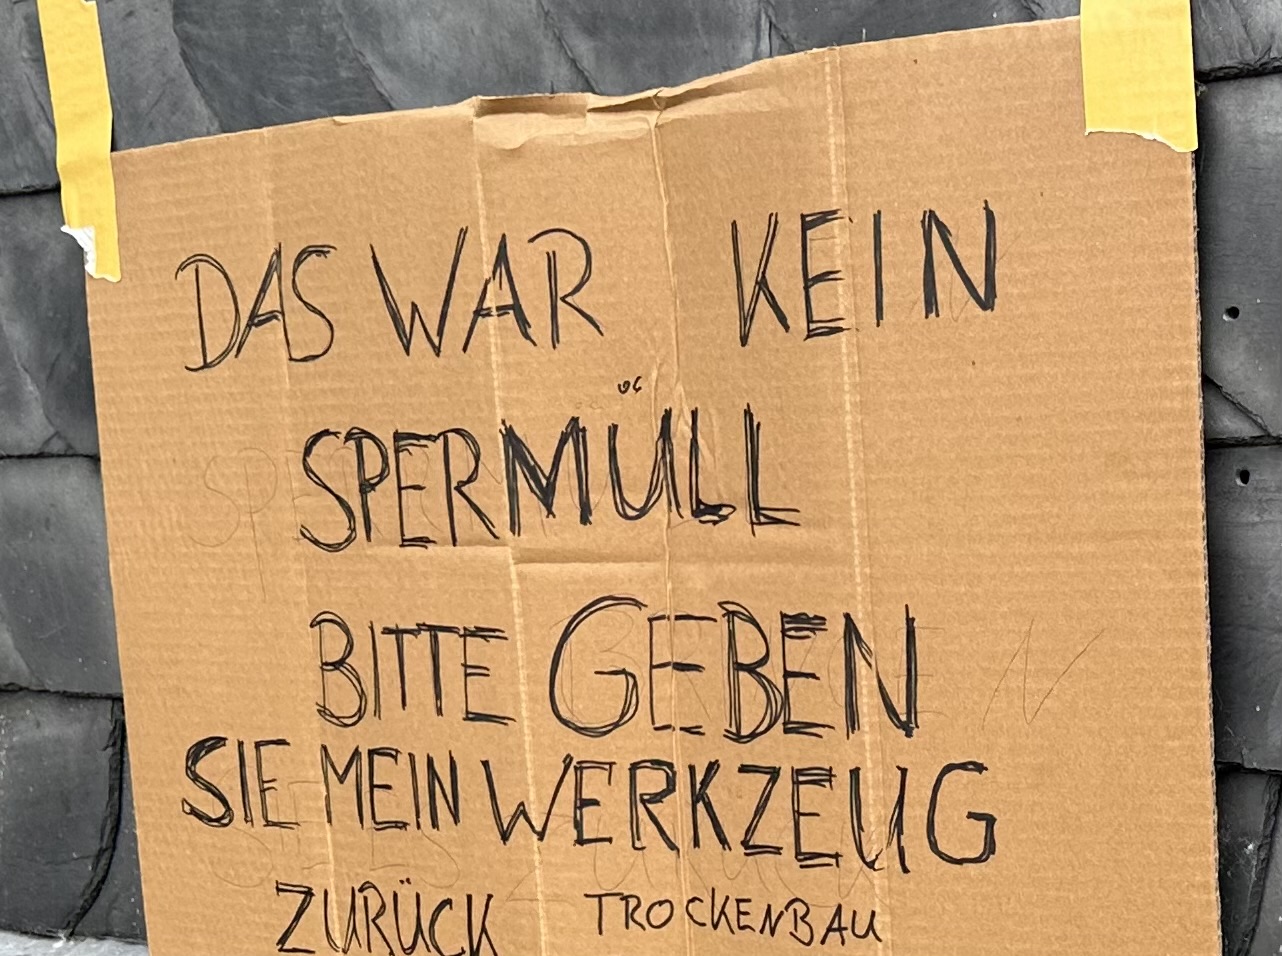 DAS WAR KEIN
SPERMÜLL
BITTE GEBEN
SIE MEIN WERKZEUG
ZURÜCK TROCKENBAU